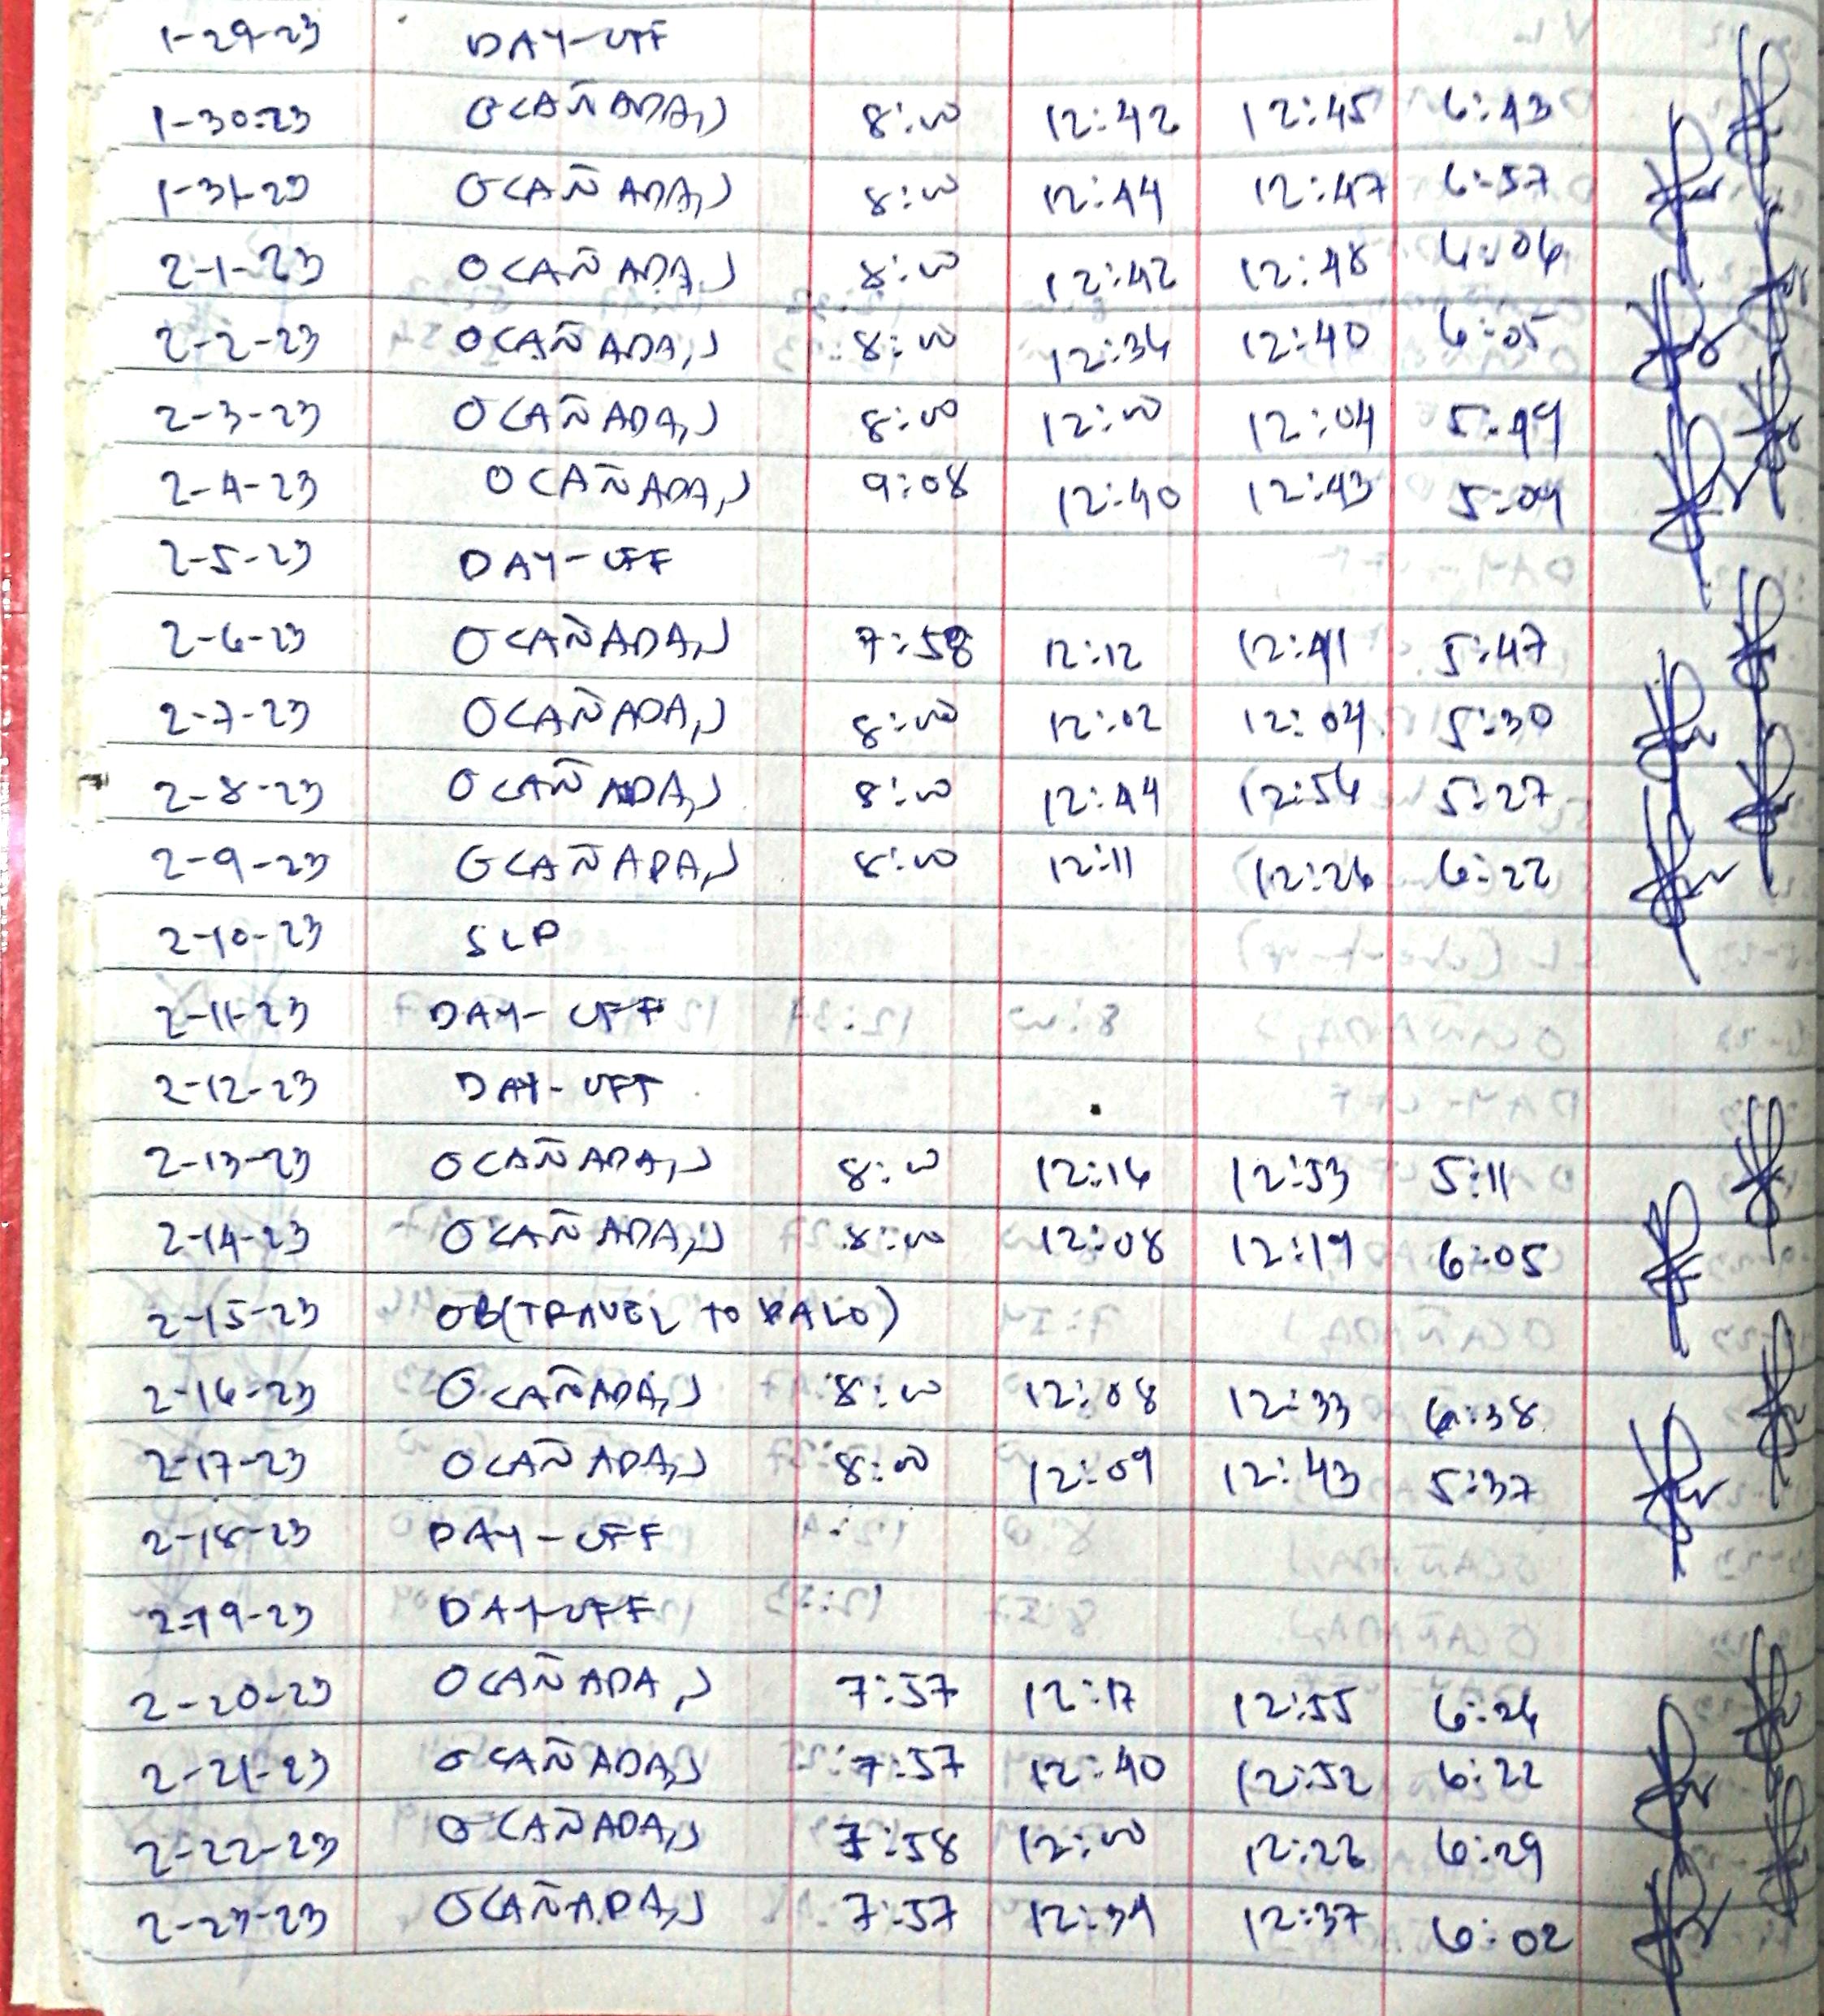 1-29-23 DAY-OFF
1-30-23 OCAÑADA,J 8:00 12:42 12:45 6:43
1-31-23 OCAÑADA,J 8:00 12:44 12:47 6:57
2-1-23 OCAÑADA,J 8:00 12:42 12:48 6:06
2-2-23 OCAÑADA,J 8:00 12:36 12:40 6:05
2-3-23 OCAÑADA,J 8:00 12:00 12:04 5:49
2-4-23 OCAÑADA,J 9:08 12:40 12:43 5:09
2-5-23 DAY-OFF
2-6-23 OCAÑADA,J 7:58 12:12 12:41 5:47
2-7-23 OCAÑADA,J 8:00 12:02 12:04 5:30
2-8-23 OCAÑADA,J 8:00 12:44 12:56 5:27
2-9-23 OCAÑADA,J 8:00 12:11 12:26 6:22
2-10-23 SLP
2-11-23 DAY-OFF
2-12-23 DAY-OFF
2-13-23 OCAÑADA,J 8:00 12:16 12:53 5:11
2-14-23 OCAÑADA,J 8:00 12:08 12:19 6:05
2-15-23 OB(TRAVEL TO PALO)
2-16-23 OCAÑADA,J 8:00 12:08 12:33 6:38
2-17-23 OCAÑADA,J 8:00 12:09 12:43 5:37
2-18-23 DAY-OFF
2-19-23 DAY-OFF
2-20-23 OCAÑADA,J 7:57 12:17 12:55 6:26
2-21-23 OCAÑADA,J 7:57 12:40 12:52 6:22
2-22-23 OCAÑADA,J 7:58 12:00 12:22 6:29
2-23-23 OCAÑADA,J 7:57 12:34 12:37 6:02